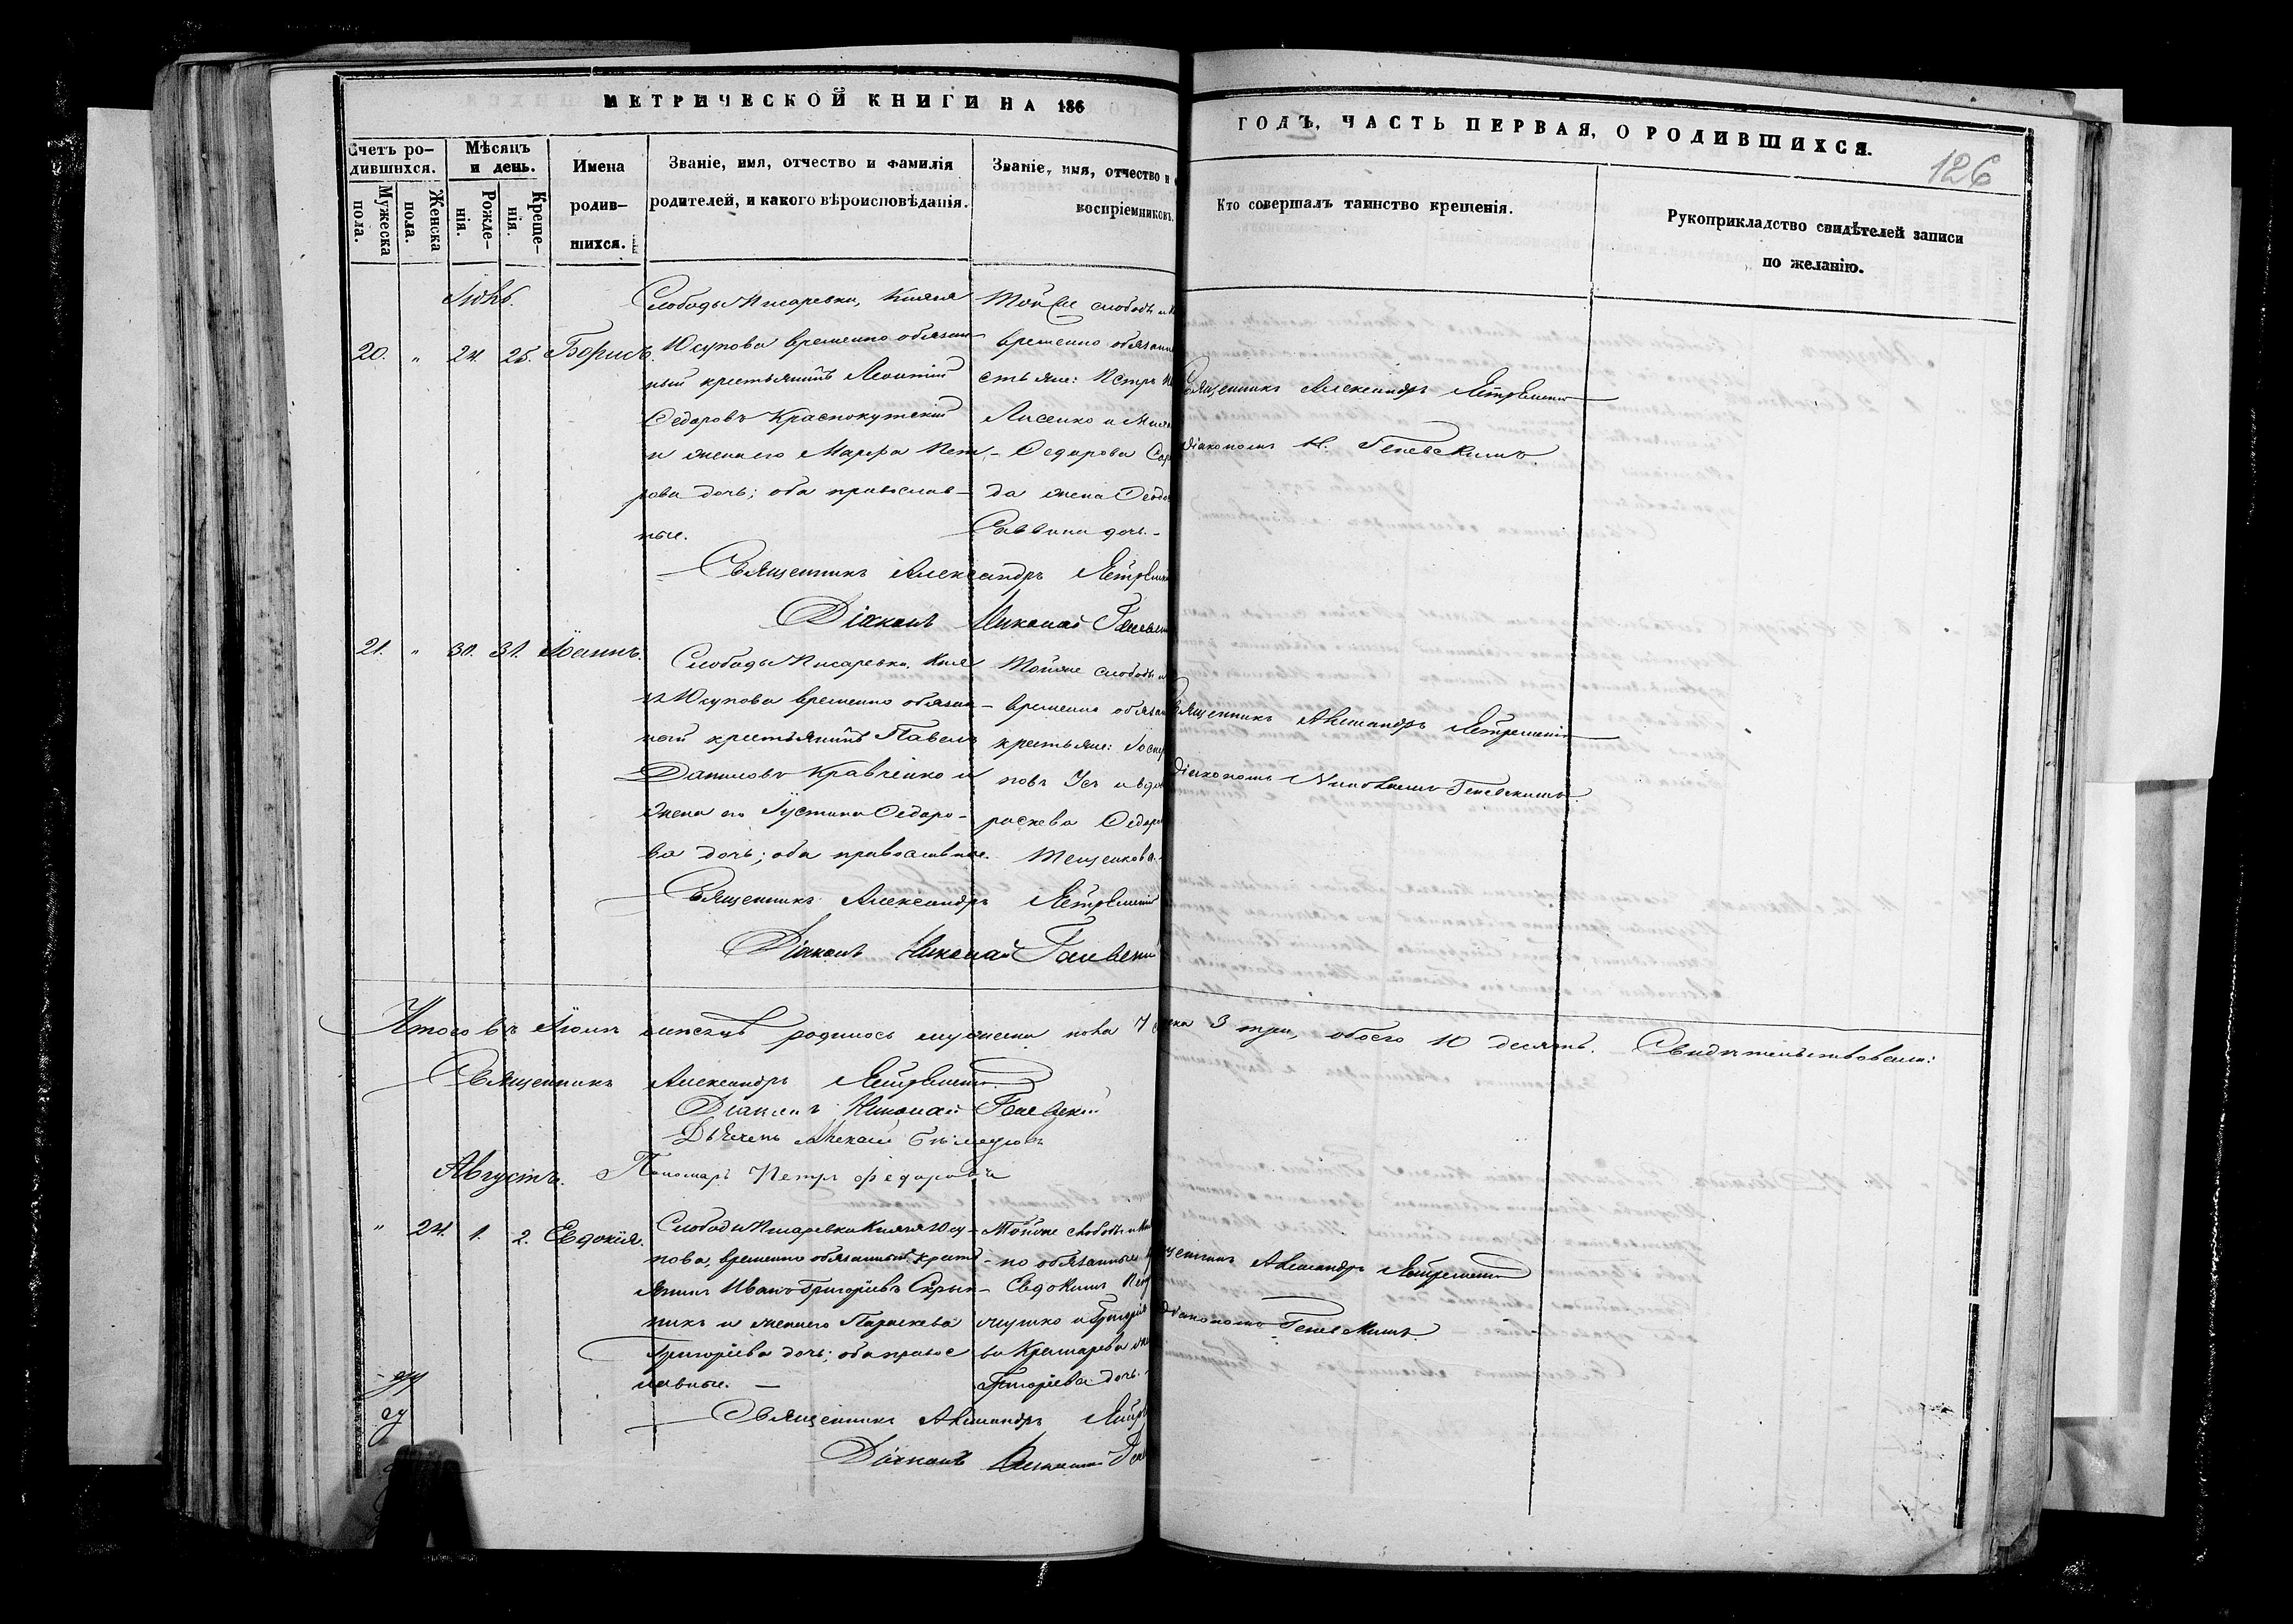 МЕТРИЧЕСКОЙ КНИГИ НА 186
ГОДЪ, ЧАСТЬ ПЕРВАЯ, О РОДИВШИХСЯ.
126
Счетъ ро-
дившихся.
Мужеска
пола.
Женска
пола.
Мѣсяцъ
и день.
Рожде-
нія.
Креще-
нія.
Имена
родив-
шихся.
Званіе, имя, отчество и фамилія
родителей, и какого вѣроисповѣданія.
Званіе, имя, отчество и
воспріемниковъ.
Кто совершалъ таинство крещенія.
Рукоприкладство свидѣтелей записи
по желанію.
Іюль.
20. " 24 25. Борисъ.
Слободы Писаревки, Князя
Юсупова временно обязан-
ный крестьянинъ Леонтій
Ѳедоровъ Краснокутскій
и жена его Марфа Пет-
рова дочь; оба православ-
ные.
Той же слободы и
временно обязанн
стьяне: Петръ
Лисенко и
Ѳедорова
да жена
Саввина дочь.
Священникъ Александръ
Діаконъ Николай
Священникъ Александръ
діакономъ Н. Геневскимъ.
21. " 31. 31. Іоаннъ.
Слободы Писаревки, Кня
зя Юсупова временно обязан-
ный крестьянинъ Павелъ
Даниловъ Кравченко и
жена его Іустина Ѳедоро-
ва дочь; оба православные.
Той же слободы и
временно обязан
крестьяне:
повъ Усъ и вдо
раскева Ѳедоро
Тещенкова.
Священникъ Александръ
Діаконъ Николай
Священникъ Александръ
діакономъ Николаемъ Геневскимъ.
Итого въ Іюлѣ мѣсяцѣ родилось мужеска пола 7 ска 3 три, обоего 10 десять. Свидѣтельствовали:
Священникъ Александръ
Діаконъ Николай Геневскій
Дьячекъ
Пономарь Петръ Федоровъ
Августъ.
" 24. 1. 2. Евдокія.
Слободы Писаревки Князя Юсу-
пова, временно обязанный крестья
янинъ Иванъ Григоріевъ Скрып-
никъ и жена его Параскева
Григоріева дочь; оба правос
лавные.
Той же слободы
но обязанные
Евдокимъ
и Григорія
ва
Григоріева дочь.
Священникъ Александръ
Діаконъ Николай
Священникъ Александръ
діакономъ Геневскимъ.